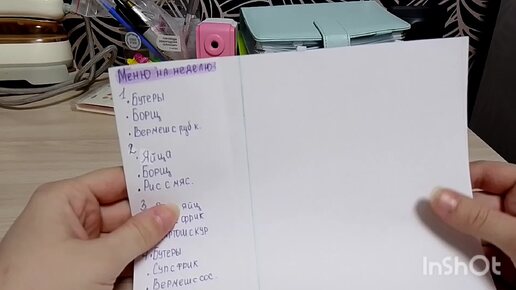 Меню на неделю
1.
• Бутеры
• Борщ
• Вермеш с руб к.
2.
• Яйца
• Борщ
• Рис с мяс.
3.
яйц
фрик
кур
• Бутеры
• Суп с фрик
• Вермеш с сос.
InShOt